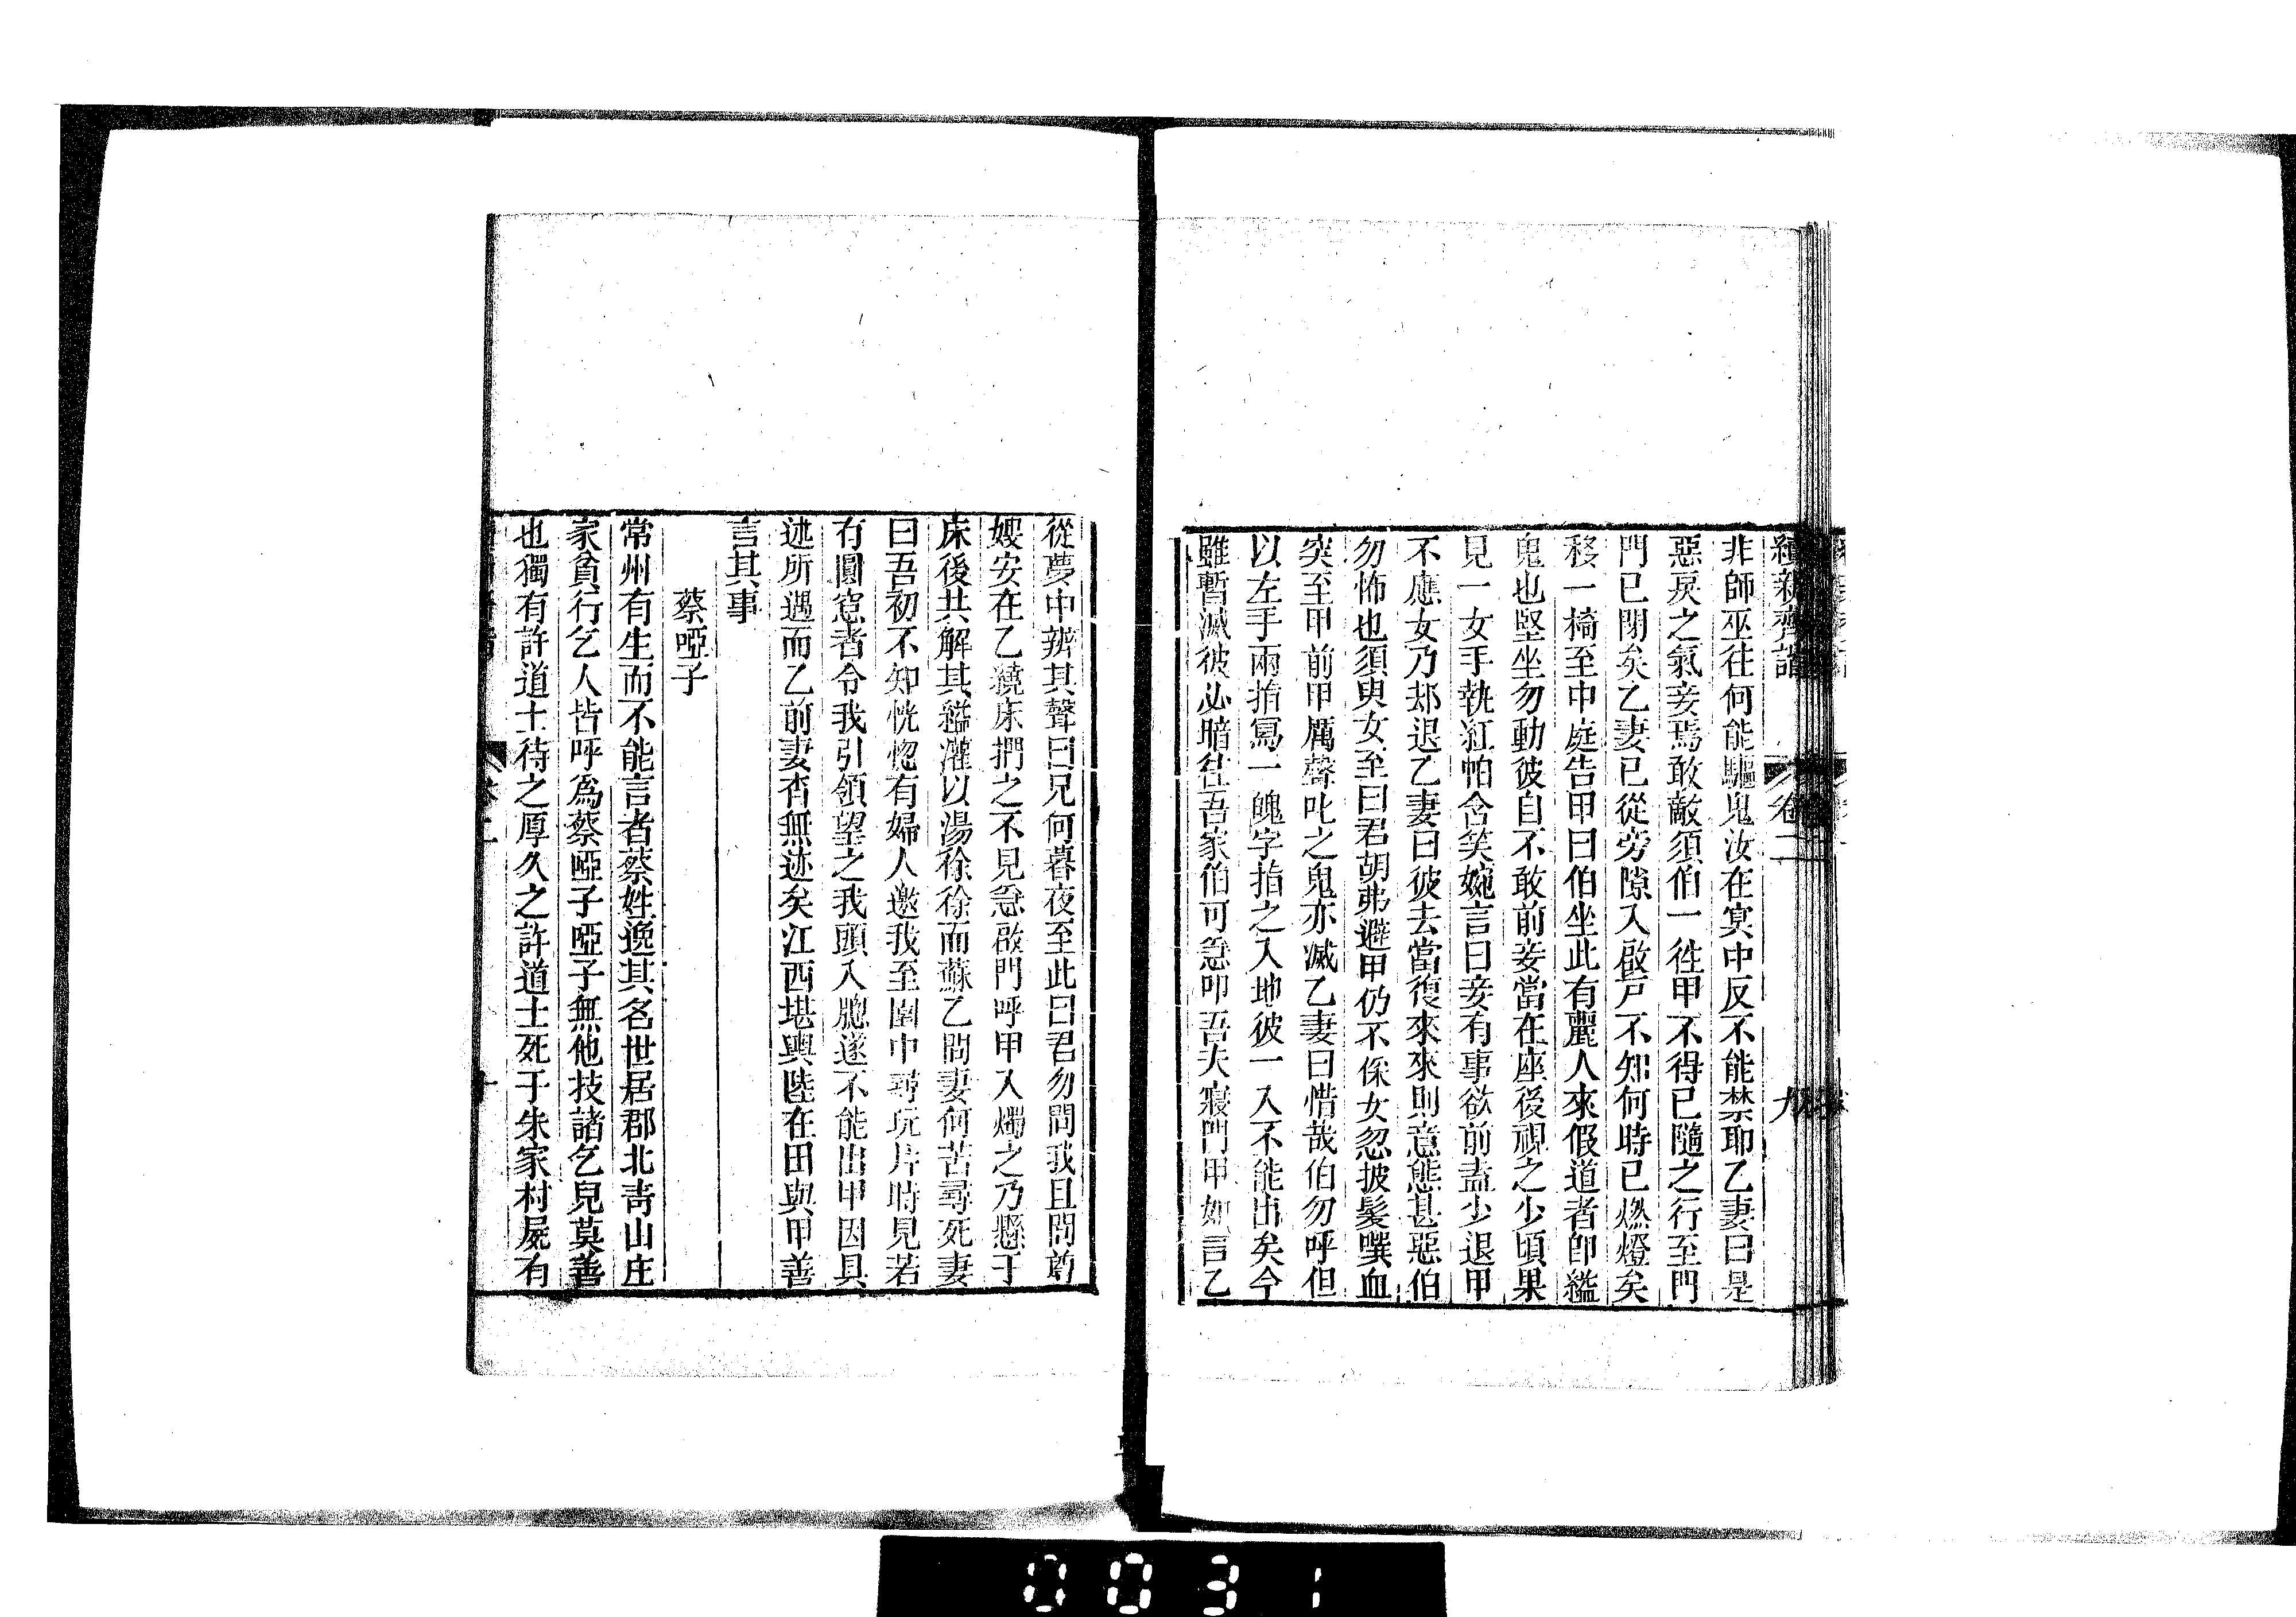 續新齊諧 卷二 九
非師巫往何能驅鬼汝在冥中反不能禁耶乙妻曰是
惡戾之氣妾焉敢敵須伯一徃甲不得已隨之行至門
門已閉矣乙妻已從旁隙入啟戸不知何時已燃燈矣
移一椅至中庭告甲曰伯坐此有麗人來假道者卽縊
鬼也堅坐勿動彼自不敢前妾當在座後視之少頃果
見一女手執紅帕含笑婉言曰妾有事欲前盍少退甲
不應女乃却退乙妻曰彼去當復來來則意態甚惡伯
勿怖也須臾女至曰君胡弗避甲仍不倸女忽披髪噀血
突至甲前甲厲聲叱之鬼亦滅乙妻曰惜哉伯勿呼但
以左手兩指寫一魄字指之入地彼一入不能出矣今
雖暫滅彼必暗徃吾家伯可急叩吾夫寢門甲如言乙
從夢中辨其聲曰兄何暮夜至此曰君勿問我且問尊
嫂安在乙繞床捫之不見急啟門呼甲入燭之乃懸于
床後共解其縊灌以湯徐徐而蘇乙問妻何苦尋死妻
曰吾初不知恍惚有婦人邀我至園中尋玩片時見若
有圓窓者令我引領望之我頭入牕遂不能出甲因具
述所遇而乙前妻杳無迹矣江西堪輿陸在田與甲善
言其事
蔡啞子
常州有生而不能言者蔡姓逸其名世居郡北靑山庄
家貧行乞人皆呼爲蔡啞子啞子無他技諸乞兒莫善
也獨有許道士待之厚久之許道士死于朱家村屍有